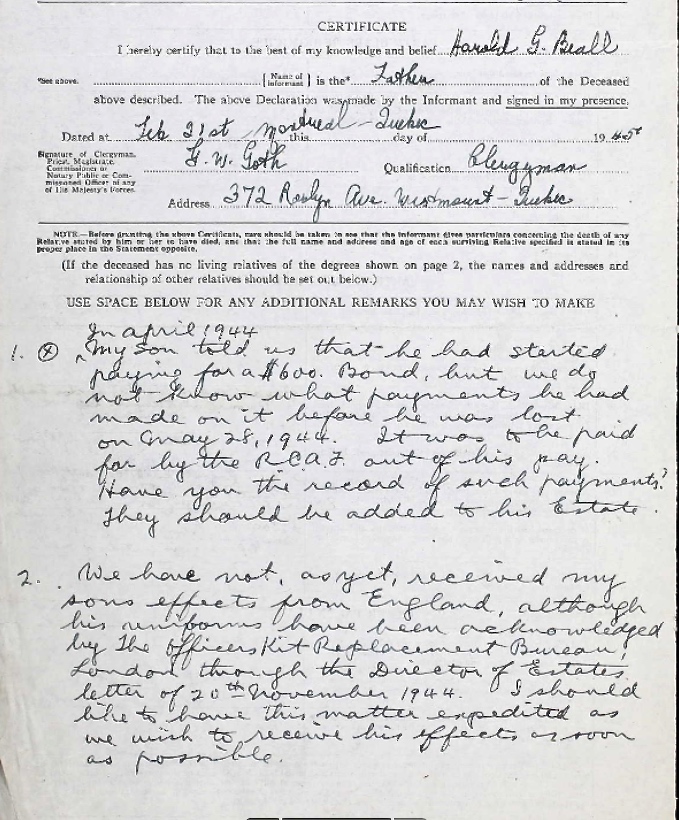 CERTIFICATE
I hereby certify that to the best of my knowledge and belief Harold G. Beall
*See above. {Name of Informant} is the* Father of the Deceased
above described. The above Declaration was made by the Informant and signed in my presence.
Dated at Feb 21st, Montreal - Quebec this day of 1945
Signature of Clergyman, Priest, Magistrate, Commissioner or Notary Public or Commissioned Officer of any of His Majesty's Forces. G. W. Goth Qualification Clergyman
Address 372 Roslyn Ave. Westmount - Quebec
NOTE.—Before granting the above Certificate, care should be taken to see that the informant gives particulars concerning the death of any
Relative stated by him or her to have died, and that the full name and address and age of each surviving Relative specified is stated in its
proper place in the Statement opposite.
(If the deceased has no living relatives of the degrees shown on page 2, the names and addresses and
relationship of other relatives should be set out below.)
USE SPACE BELOW FOR ANY ADDITIONAL REMARKS YOU MAY WISH TO MAKE
In April 1944
1. My son told us that he had started
paying for a $600. Bond, but we do
not know what payments he had
made on it before he was lost
on May 28, 1944. It was to be paid
for by the R.C.A.F. out of his pay.
Have you the record of such payments?
They should be added to his Estate.
2. We have not, as yet, received my
sons effects from England, although
his uniforms have been acknowledged
by The Officers Kit Replacement Bureau,
London through the Director of Estates
letter of 20th November 1944. I should
like to have this matter expedited as
we wish to receive his effects as soon
as possible.